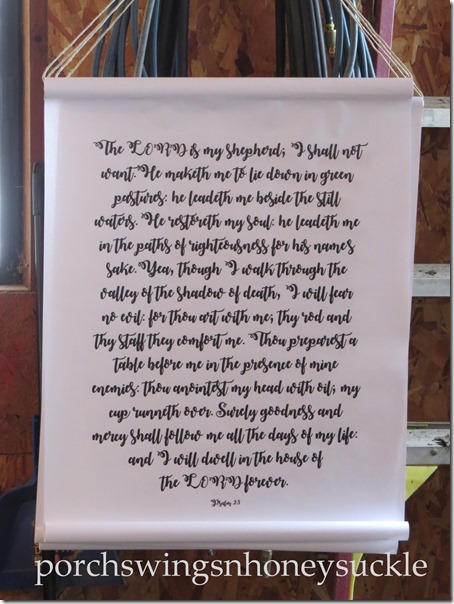 The LORD is my shepherd; I shall not
want. He maketh me to lie down in green
pastures: he leadeth me beside the still
waters. He restoreth my soul: he leadeth me
in the paths of righteousness for his names
sake. Yea, though I walk through the
valley of the shadow of death, I will fear
no evil: for thou art with me; thy rod and
thy staff they comfort me. Thou preparest a
table before me in the presence of mine
enemies: thou anointest my head with oil; my
cup runneth over. Surely goodness and
mercy shall follow me all the days of my life:
and I will dwell in the house of
the LORD forever.
Psalm 23
porchswingsnhoneysuckle